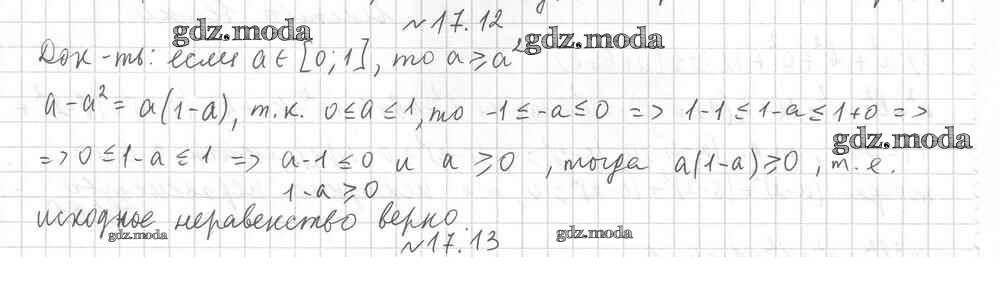 №17.12
gdz.moda
gdz.moda
Док-ть: если a ∈ [0; 1], то a ≥ a²
a - a² = a(1-a), т.к. 0 ≤ a ≤ 1, то -1 ≤ -a ≤ 0 => 1-1 ≤ 1-a ≤ 1+0 =>
gdz.moda
=> 0 ≤ 1-a ≤ 1 => a-1 ≤ 0 и a ≥ 0, тогда a(1-a) ≥ 0, т.е.
1-a ≥ 0
исходное неравенство верно.
gdz.moda
gdz.moda
№17.13